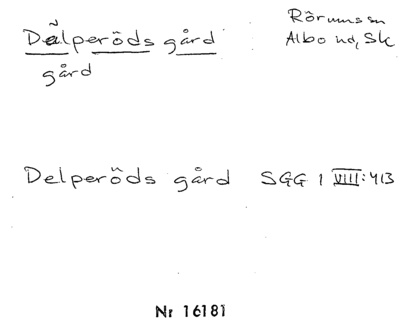 Dälperöds gård
gård
Rörums sn
Albo hd, Sk
Delperöds gård SGG 1 VIII:413
Nr 16181